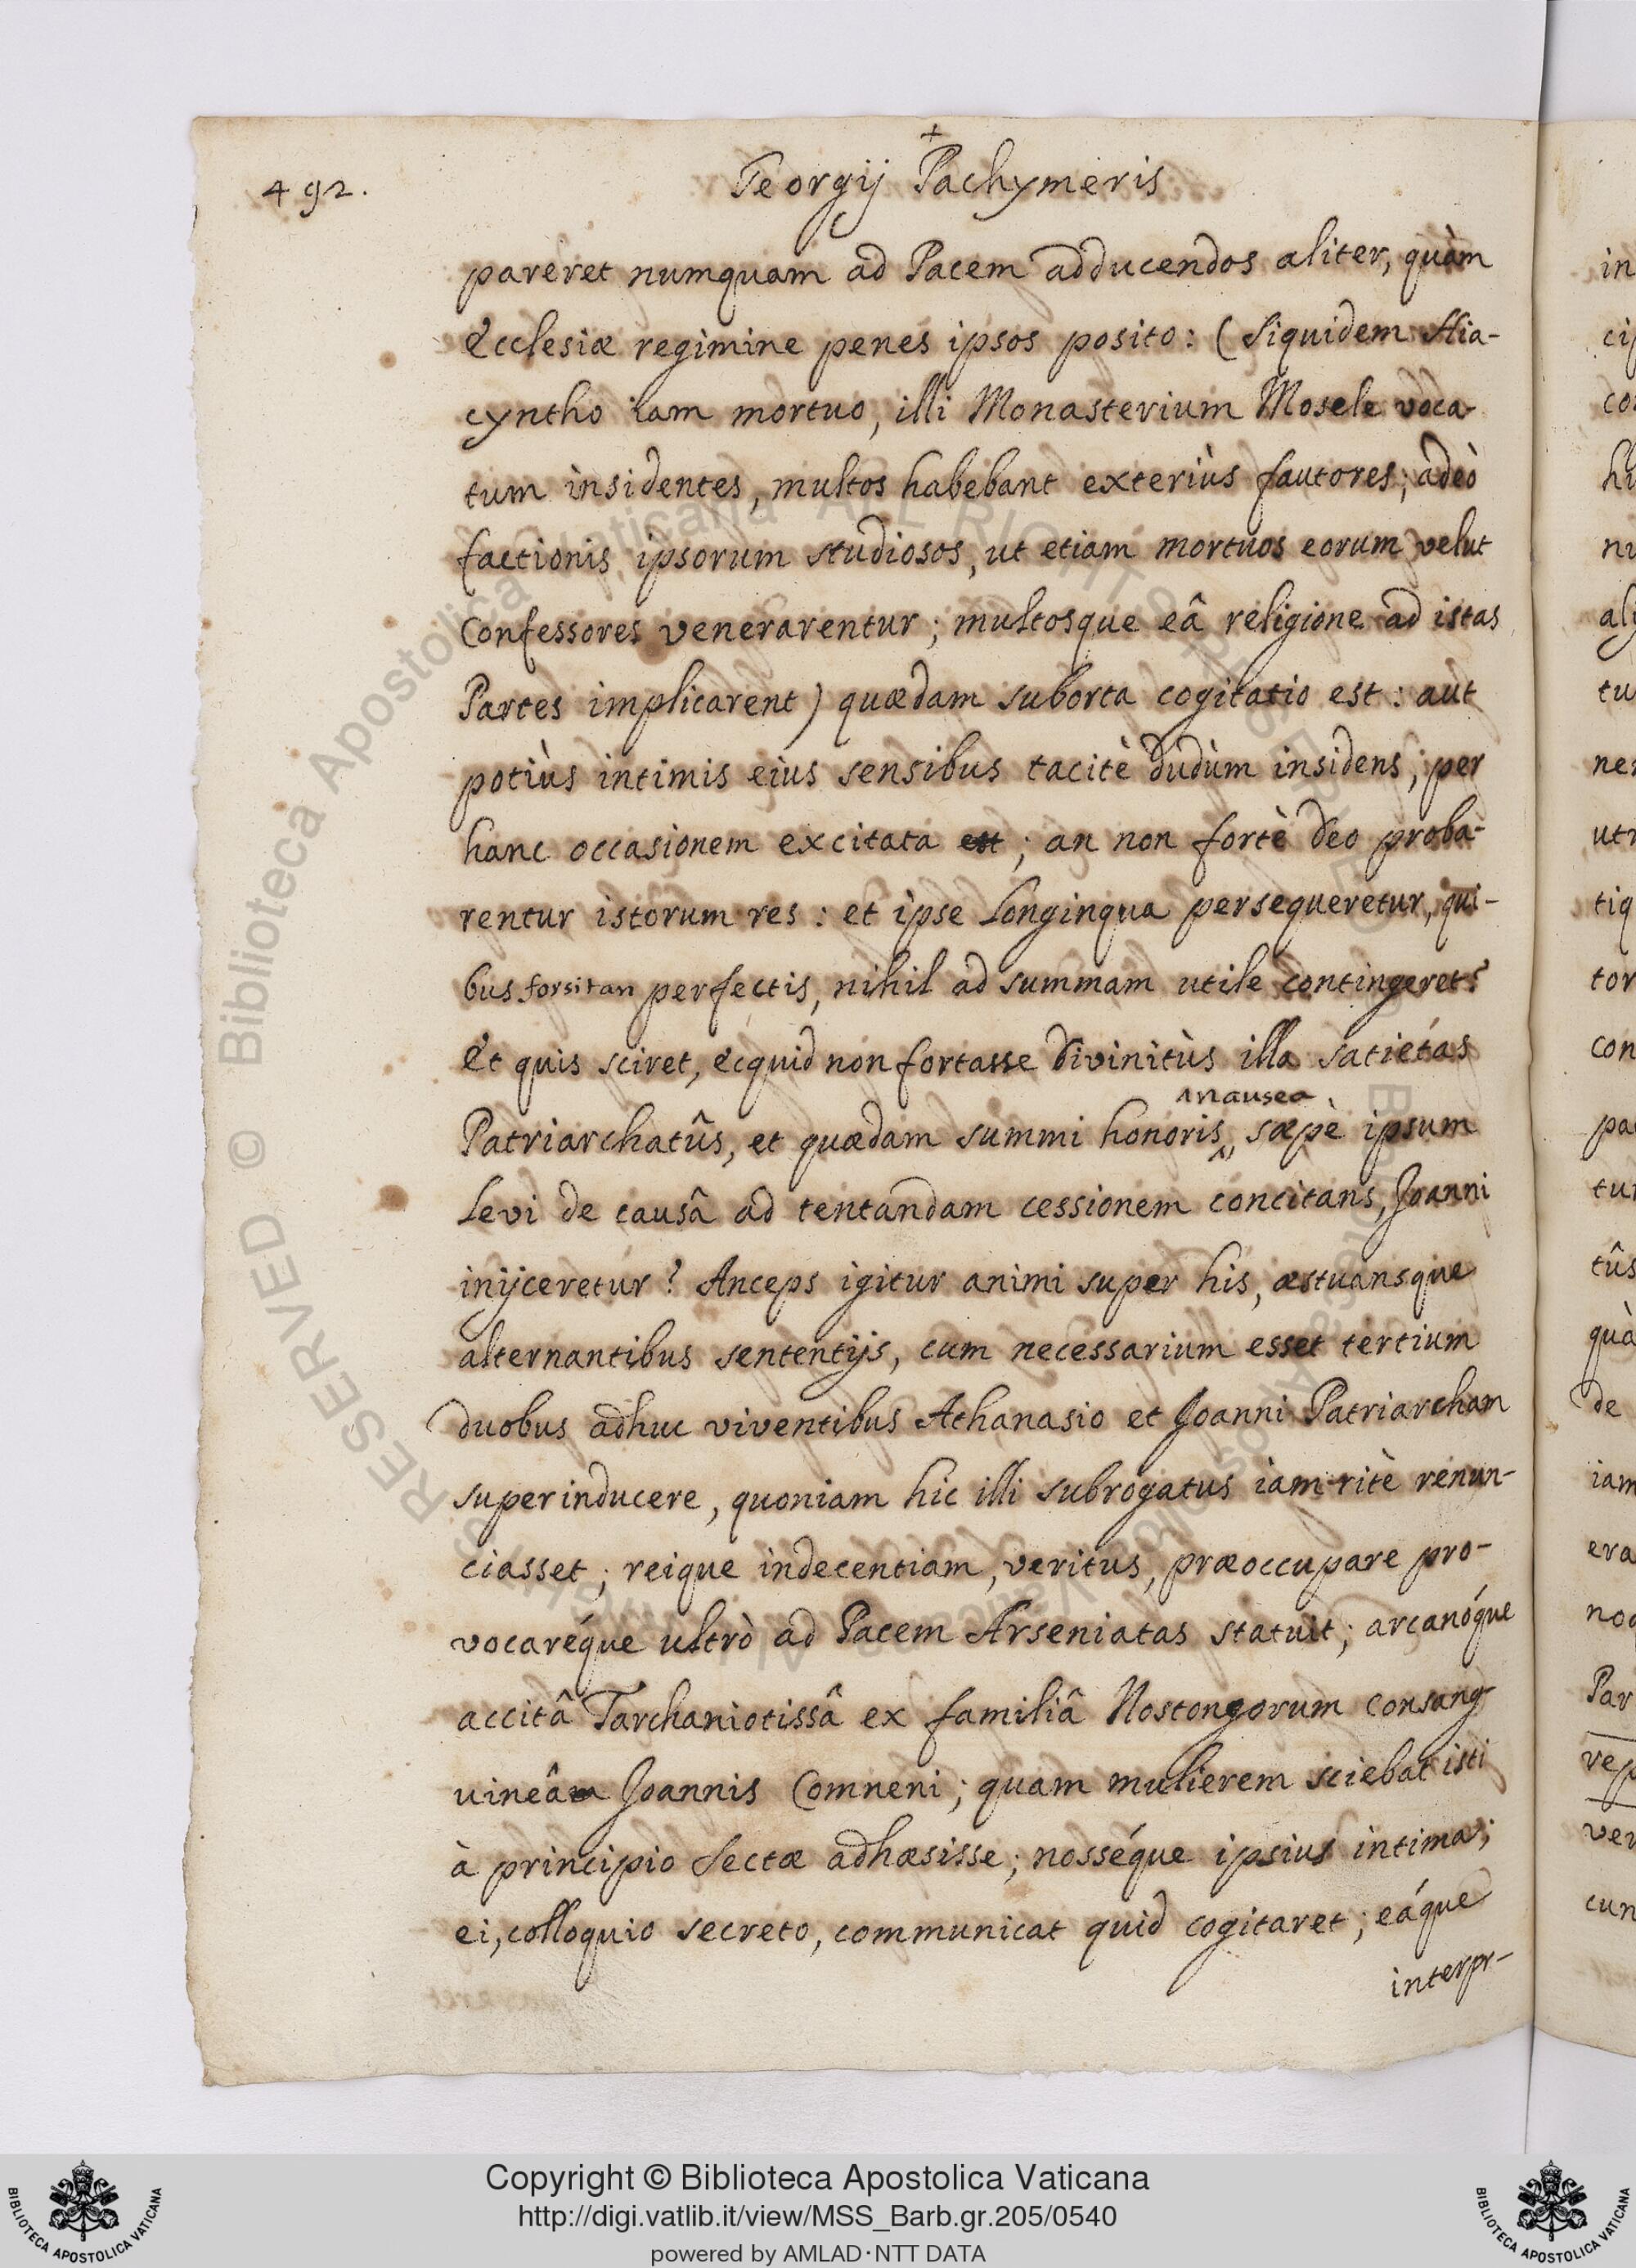 492.
+
Georgij Pachymeris
pareret numquam ad Pacem adducendos aliter, quàm
Ecclesiæ regimine penes ipsos posito: (Siquidem Hia-
cyntho iam mortuo, illi Monasterium Mosele voca-
tum insidentes, multos habebant exteriùs fautores; adeò
factionis ipsorum studiosos, ut etiam mortuos eorum velut
Confessores venerarentur; multosque eâ religione ad istas
Partes implicarent) quædam suborta cogitatio est: aut
potiùs intimis eius sensibus tacitè dudùm insidens; per
hanc occasionem excitata est; an non fortè Deo proba-
rentur istorum res: et ipse Longinqua persequeretur, qui-
bus forsitan perfectis, nihil ad summam utile contingeret?
Et quis sciret, ecquid non fortasse Divinitùs illa satietas
Patriarchatûs, et quædam summi honoris ^ nausea, sæpè ipsum
Levi de causâ ad tentandam cessionem concitans, Joanni
inijceretur? Anceps igitur animi super his, æstuansque
alternantibus sententijs, cum necessarium esset tertium
duobus adhuc viventibus Athanasio et Joanni Patriarcham
superinducere, quoniam hic illi subrogatus iam ritè renun-
ciasset; reique indecentiam, veritus, præoccupare pro-
vocaréque ultrò ad Pacem Arseniatas statuit; arcanóque
accitâ Tarchaniotissâ ex familiâ Nostongorum consang-
uineâ Joannis Comneni; quam mulierem sciebat isti
à principio Sectæ adhæsisse; nosséque ipsius intima;
ei, colloquio secreto, communicat quid cogitaret; eáque
interpr-
in
ci
co
hu
nu
ali
tu
ne
utr
tiq
tor
con
pa
tu
tûs
quà
de
iam
era
no
Par
vep
ver
cun
© Biblioteca Apostolica Vaticana ALL RIGHTS RESERVED
Copyright © Biblioteca Apostolica Vaticana
http://digi.vatlib.it/view/MSS_Barb.gr.205/0540
powered by AMLAD·NTT DATA
BIBLIOTECA APOSTOLICA VATICANA
BIBLIOTECA APOSTOLICA VATICANA